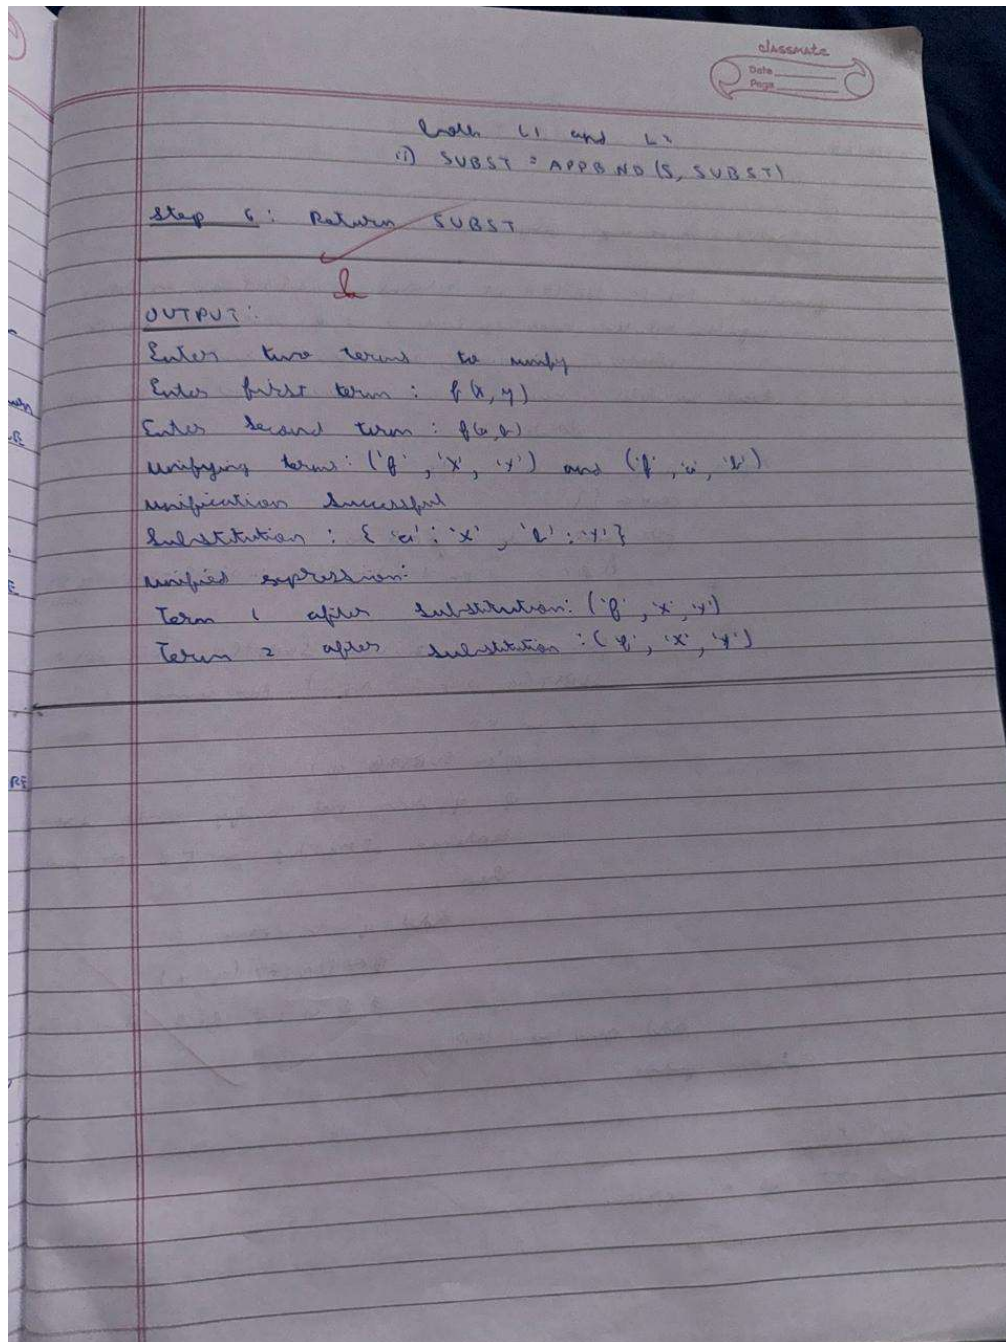 classmate
Date
Page
both L1 and L2
ii) SUBST = APPEND (S, SUBST)
Step 6: Return SUBST
OUTPUT:
Enter two terms to unify
Enter first term : f(x, y)
Enter second term : f(a, b)
unifying terms: ('f', 'x', 'y') and ('f', 'a', 'b')
unification successful
Substitution : { 'a': 'x', 'b': 'y'}
unified expression:
Term 1 after substitution: ('f', 'x', 'y')
Term 2 after substitution: ('f', 'x', 'y')
RE